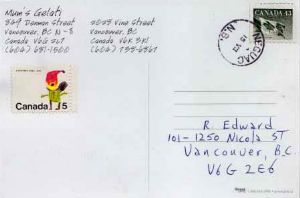 Mum's Gelati
849 Denman Street
Vancouver, BC
Canada V6G 2L7
(604) 681-1500
2028 Vine Street
Vancouver, BC
Canada V6K 3K1
(604) 738-6861
CANADA 43
NEGUAC
N.B.
Canada 5
R. Edward
101-1250 Nicola ST
Vancouver, B.C.
V6G 2E6